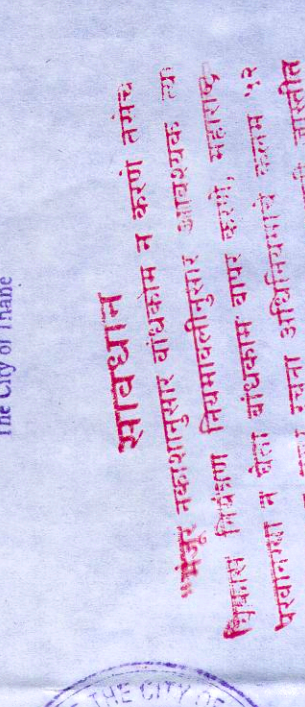 The City of Thane
सावधान
"मंजूर नकाशानुसार बांधकाम न करणे तसेच
विकास नियंत्रण नियमावलीनुसार आवश्यक त्या
परवानग्या न घेता बांधकाम वापर करणे, महाराष्ट्र
रचना अधिनियमाचे कलम ५२
THE CITY OF